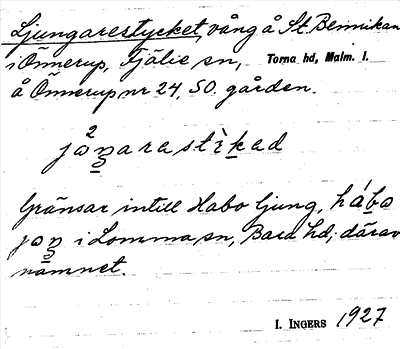 Ljungarestycket, vång å St. Bennikan
i Önnerup, Fjälie sn, Torna hd, Malm. l.
å Önnerup nr 24, SO. gården.
jɔŋarastìkad
Gränsar intill Habo ljung, hábo
jɔŋ i Lomma sn, Bara hd; därav
namnet.
I. INGERS 1927